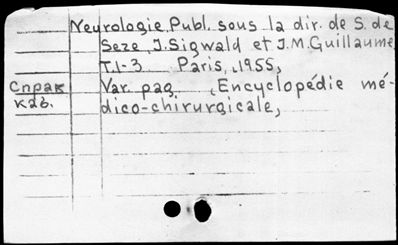 Neurologie, Publ. sous la dir. de S. de
Seze, J. Sigwald et J.M. Guillaume,
T.1-3 Paris, 1955,
Справ Var. pag. Encyclopédie mé-
каб. dico-chirurgicale,